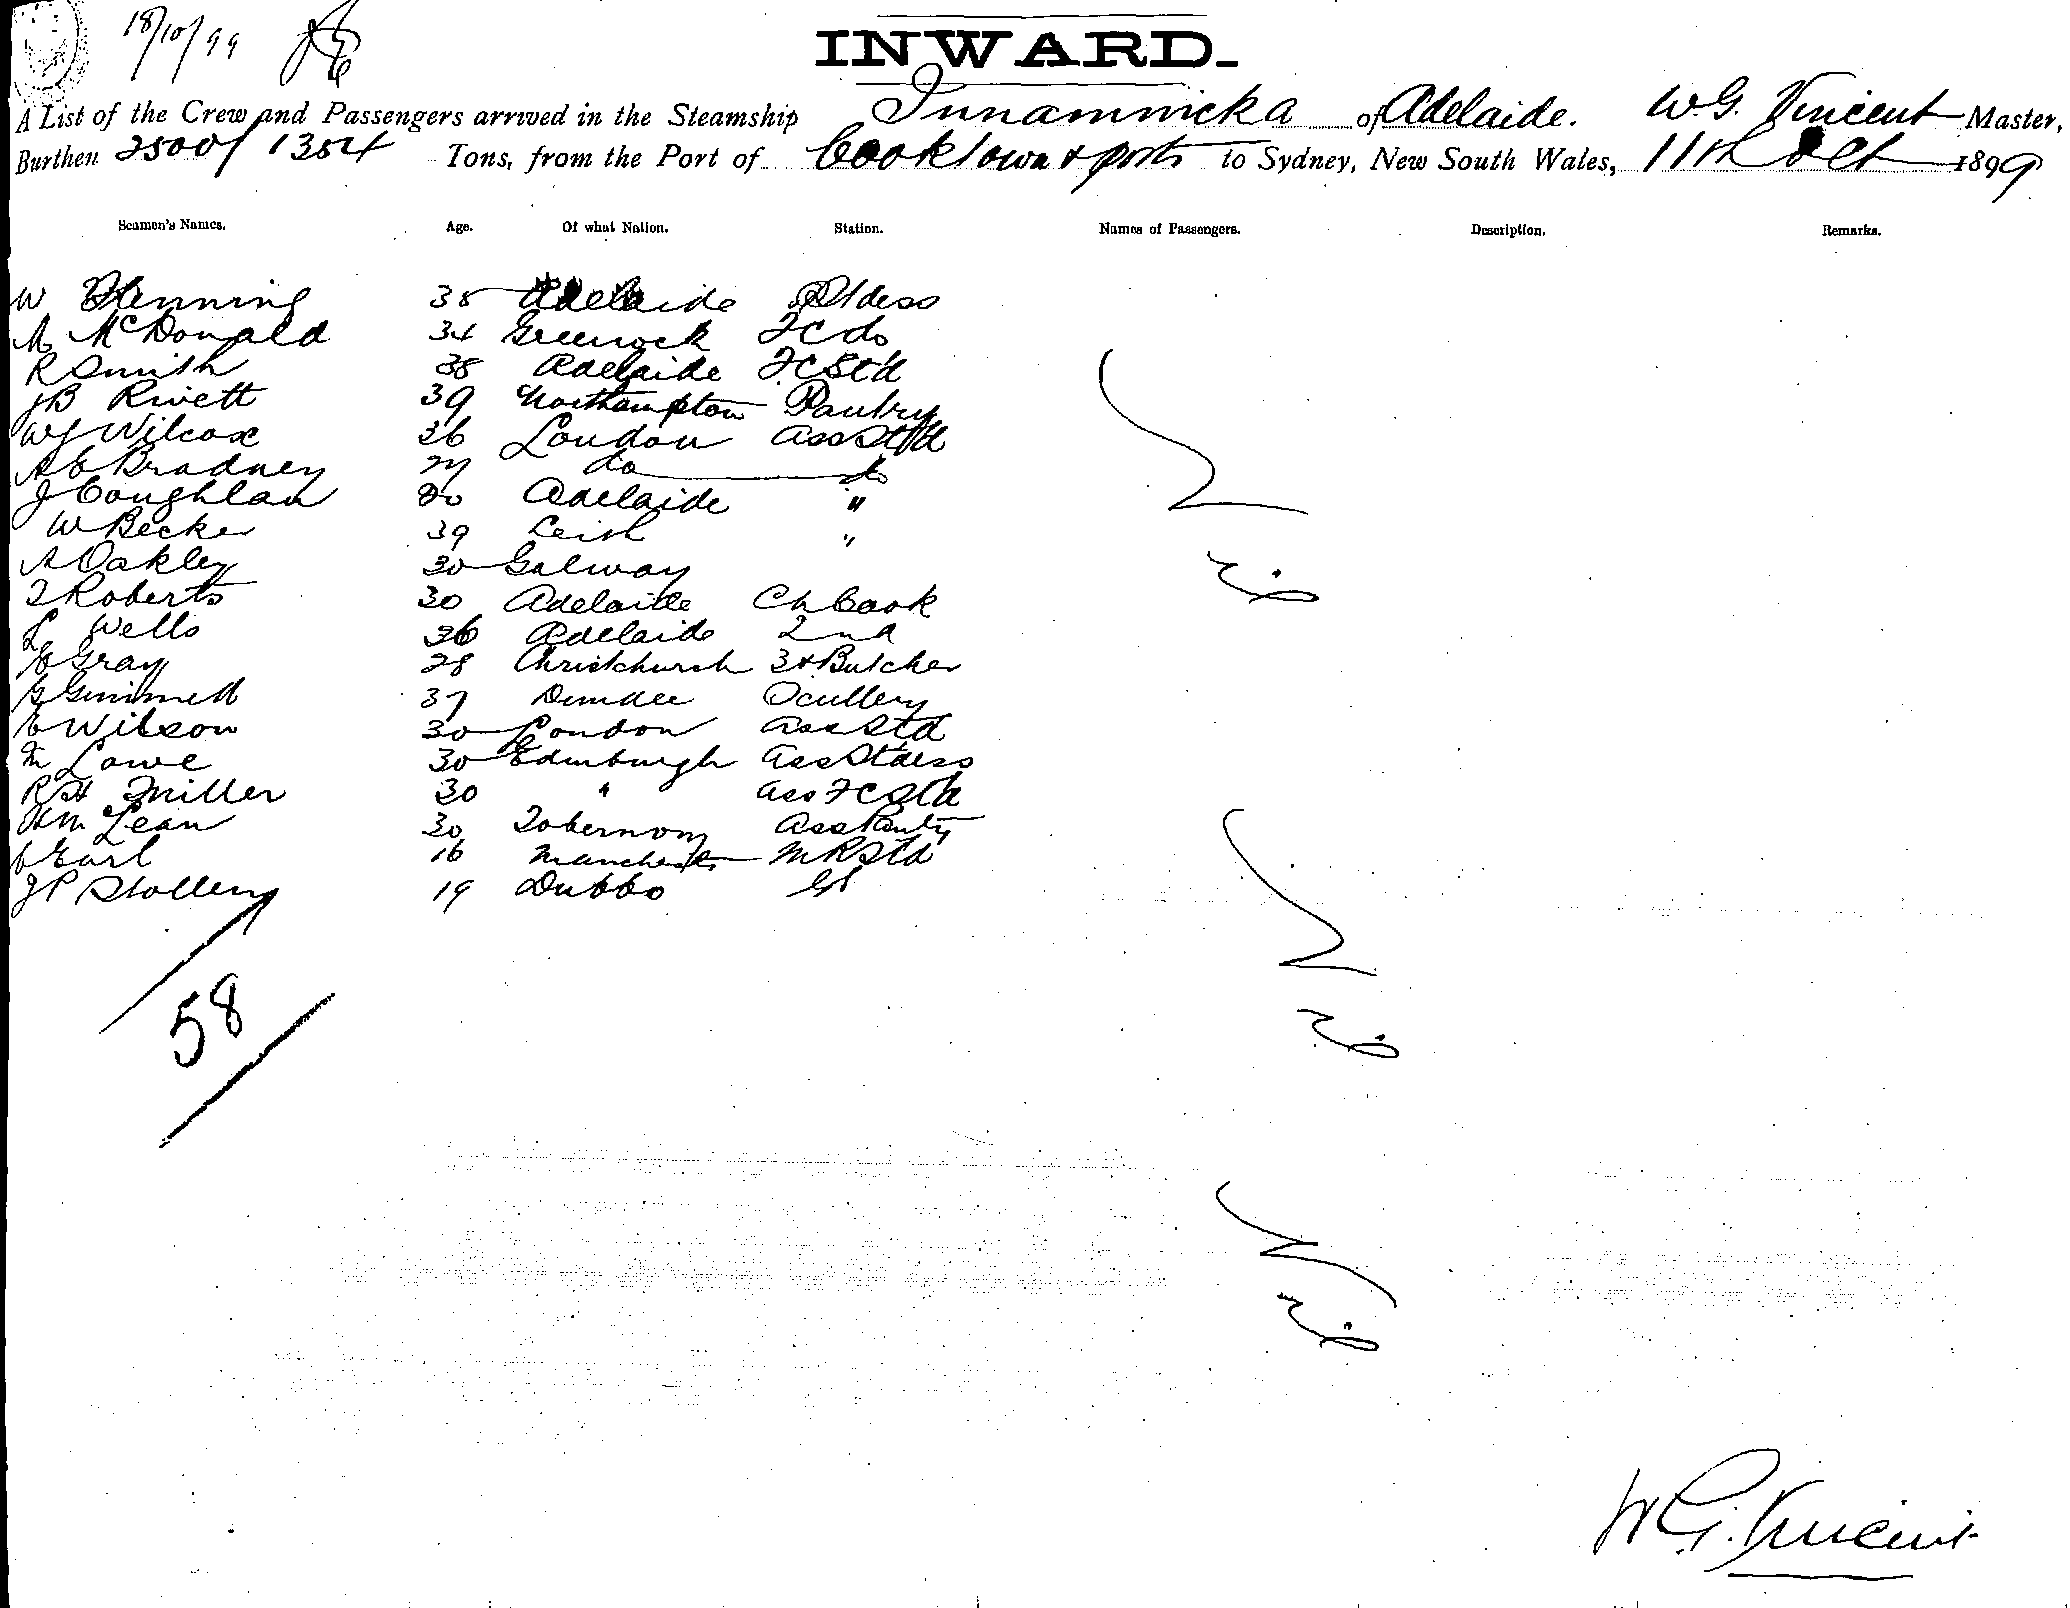 18/10/99
INWARD.
A List of the Crew and Passengers arrived in the Steamship Innamincka of Adelaide. W.G. Vincent Master,
Burthen 2500/1354 Tons, from the Port of Cooktown & ports to Sydney, New South Wales, 11th Oct 1899
Seamen's Names. Age. Of what Nation. Station. Names of Passengers. Description. Remarks.
W 38 Adelaide Stdess
M McDonald 34 Greenock FC do
R Smith 38 Adelaide FC Std
JB Rivett 39 Northampton Pantry
WJ Wilcox 36 London Ass Std
AE Bradney 24 do do
J Coughlan 20 Adelaide "
W Becker 39 Leith "
A Oakley 30 Galway
T Roberts 30 Adelaide Ch Cook
L Wells 36 Adelaide 2nd
E Gray 28 Christchurch 3 & Butcher
G Gimmell 37 Dundee Scullery
E Wilson 30 London Ass Std
M Lowe 30 Edinburgh Ass Stdess
RH Miller 30 " Ass FC Std
Lean 30 Tobermory Ass Panty
C Earl 16 Manchester MR Std
JP Stollery 19 Dubbo
58
W.G. Vincent